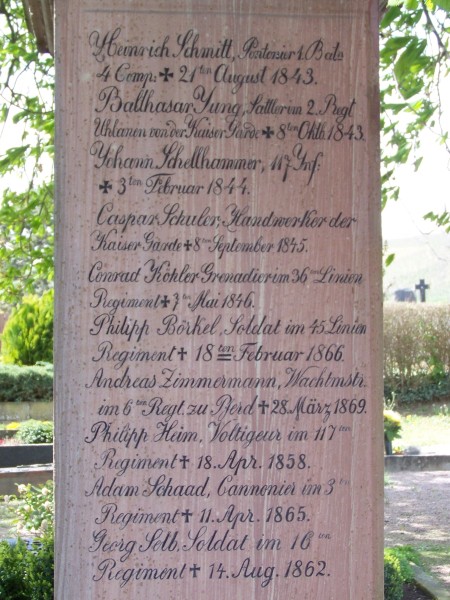 Heinrich Schmitt, Pontonier 1. Bats
4 Comp: ✠ 21ten August 1843.
Balthasar Yung, Sattler im 2. Regt
Uhlanen von der Kaiser Garde ✠ 8ten Oktb. 1843.
Yohann Schellhammer, 117 Ynf:
✠ 3ten Februar 1844.
Caspar Schuler, Handwerker der
Kaiser Garde ✠ 8ten September 1845.
Conrad Köhler Grenadier im 36ten Linien
Regiment ✝ 7ten Mai 1846.
Philipp Börkel, Soldat im 45. Linien
Regiment ✝ 18ten Februar 1866.
Andreas Zimmermann, Wachtmstr.
im 6ten Regt. zu Pferd ✝ 28. März 1869.
Philipp Heim, Voltigeur im 117ten
Regiment ✝ 18. Apr. 1858.
Adam Schaad, Cannonier im 3ten
Regiment ✝ 11. Apr. 1865.
Georg Selb, Soldat im 16ten
Regiment ✝ 14. Aug. 1862.